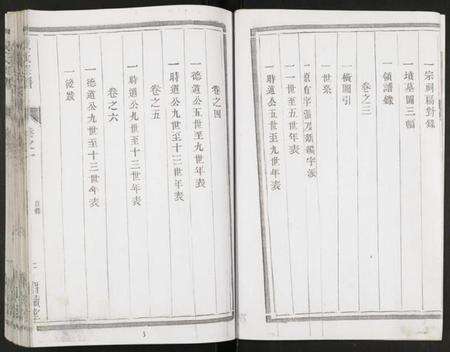 一宗祠稿對錄
一墳墓圖三幅
一領譜錄
卷之三
一橫圖引
一世系
一一世至五世年表
一聃道公五世至九世年表
卷之四
一德道公五世至九世年表
一聃道公九世至十三世年表
卷之五
一聃道公九世至十三世年表
卷之六
一德道公九世至十三世年表
一後跋
卷之一
目錄
5